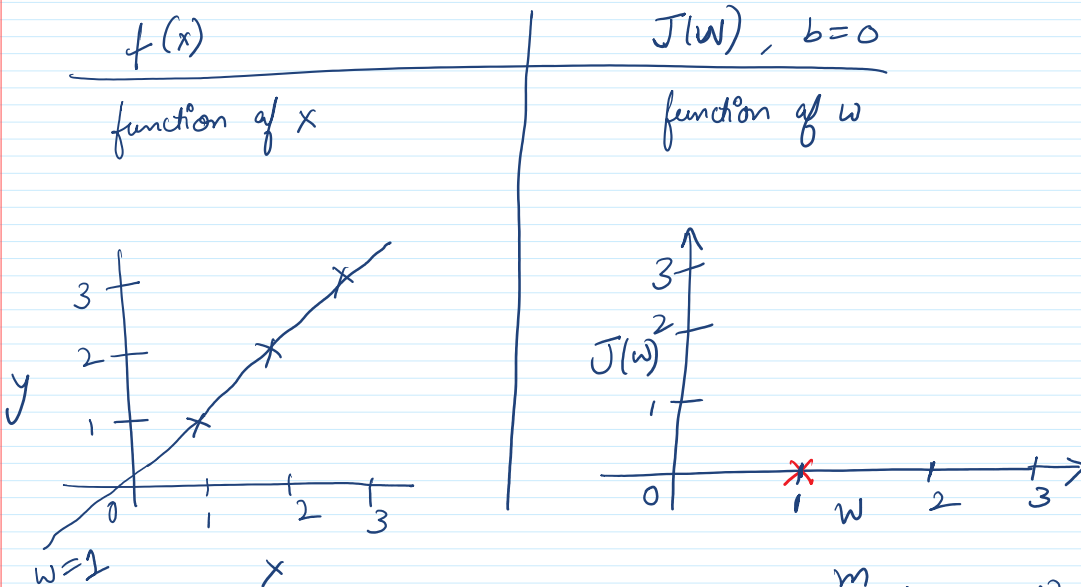 f(x)
function of x
3
2
y
1
0
1
2
3
w=1
x
J(W), b=0
function of w
3
2
J(w)
1
0
1
w
2
3
m